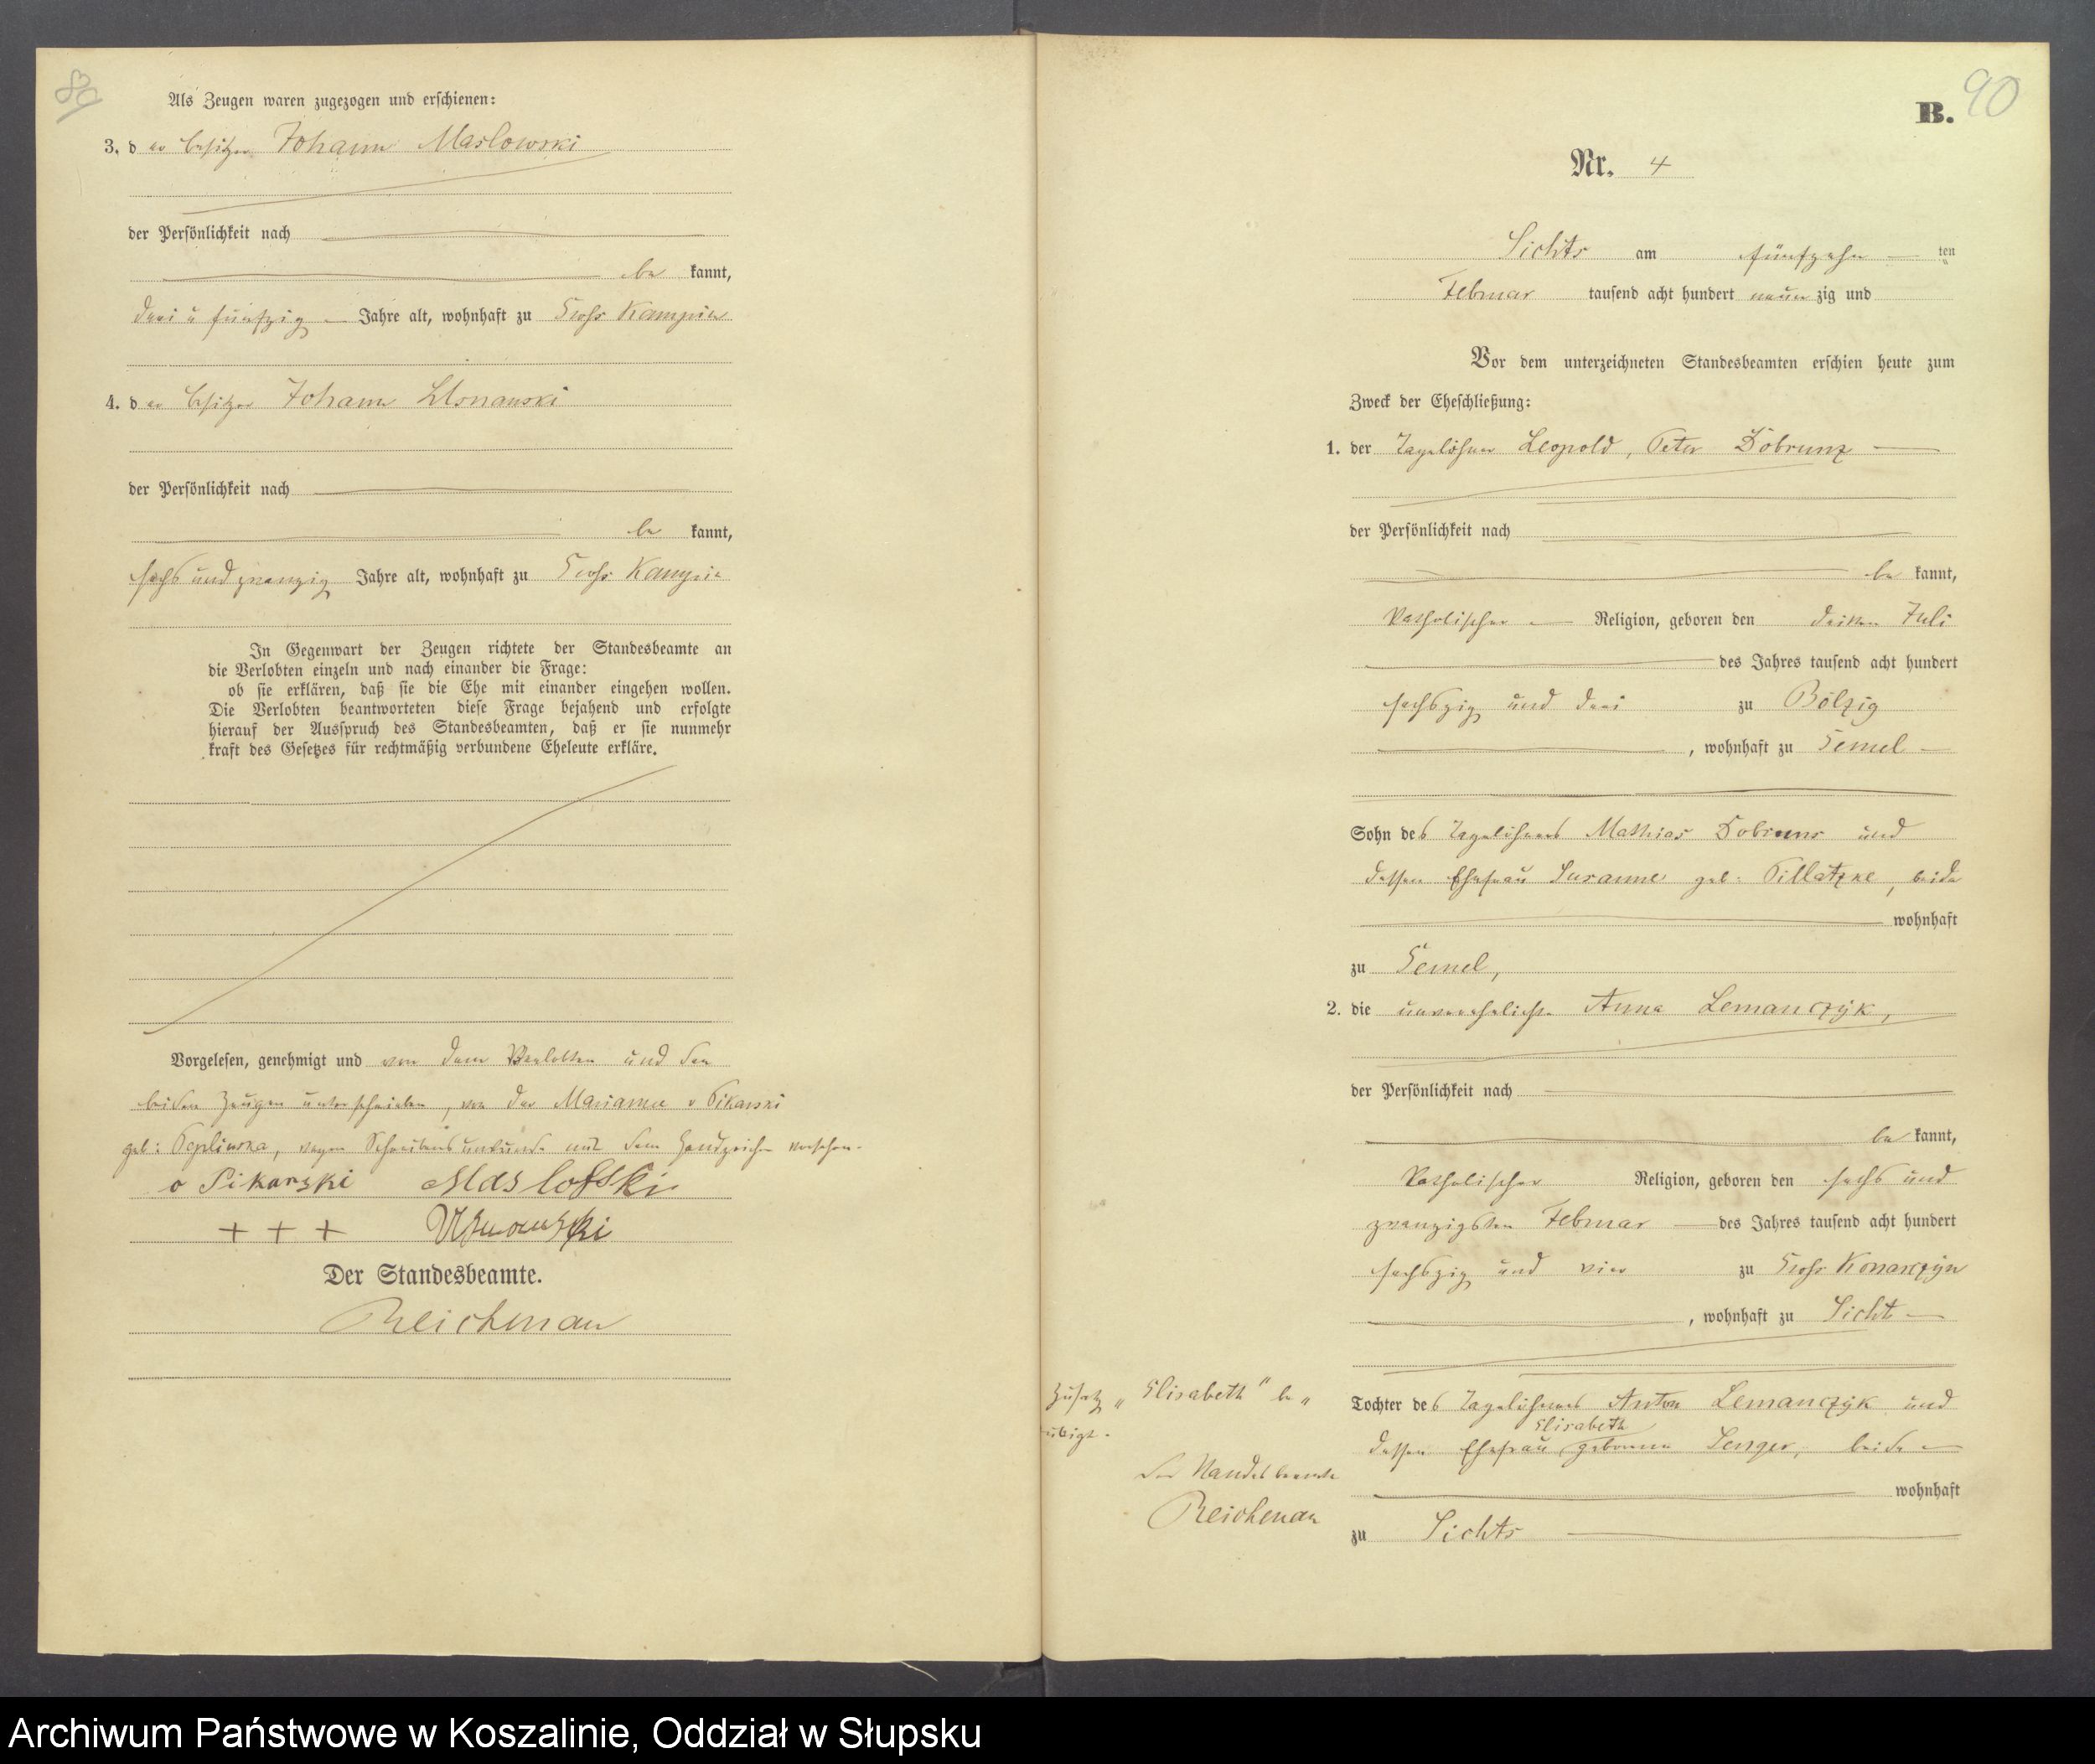 89
Als Zeugen waren zugezogen und erschienen:
3. der Besitzer Johann Maslowski
der Persönlichkeit nach
be kannt,
drei u fünfzig Jahre alt, wohnhaft zu Groß Kampin
4. der Besitzer Johann
der Persönlichkeit nach
be kannt,
sechs und zwanzig Jahre alt, wohnhaft zu Groß
In Gegenwart der Zeugen richtete der Standesbeamte an
die Verlobten einzeln und nach einander die Frage:
ob sie erklären, daß sie die Ehe mit einander eingehen wollen.
Die Verlobten beantworteten diese Frage bejahend und erfolgte
hierauf der Ausspruch des Standesbeamten, daß er sie nunmehr
kraft des Gesetzes für rechtmäßig verbundene Eheleute erkläre.
Vorgelesen, genehmigt und von dem Verlobten und den
beiden Zeugen unterschrieben, von der Marianna v Pikarski
geb: Peplinska, wegen Schreibensunkunde mit dem Handzeichen versehen.
v Pikarski Maslofski
+ + +
Der Standesbeamte.
Reichenau
B. 90
Nr. 4
Sichts am fünfzehn ten
Februar tausend acht hundert neun zig und
Vor dem unterzeichneten Standesbeamten erschien heute zum
Zweck der Eheschließung:
1. der Tagelöhner Leopold, Peter Dobrunz
der Persönlichkeit nach
be kannt,
katholischer Religion, geboren den dritten Juli
des Jahres tausend acht hundert
sechszig und drei zu Bölzig
, wohnhaft zu Gemel
Sohn des Tagelöhners Mathias Dobruns und
dessen Ehefrau Susanne geb: Pillatzke, beide
wohnhaft
zu Gemel,
2. die unverehelichte Anna Lemanczÿk,
der Persönlichkeit nach
be kannt,
katholischer Religion, geboren den sechs und
zwanzigsten Februar des Jahres tausend acht hundert
sechszig und vier zu Groß Konarczÿn
, wohnhaft zu Sicht
Zusatz „Elisabeth" be„
Tochter des Tagelöhners Anton Lemanczÿk und
Elisabeth
dessen Ehefrau geborene Senger, beide
wohnhaft
Der Standesbeamte
Reichenau
zu Sichts
Archiwum Państwowe w Koszalinie, Oddział w Słupsku